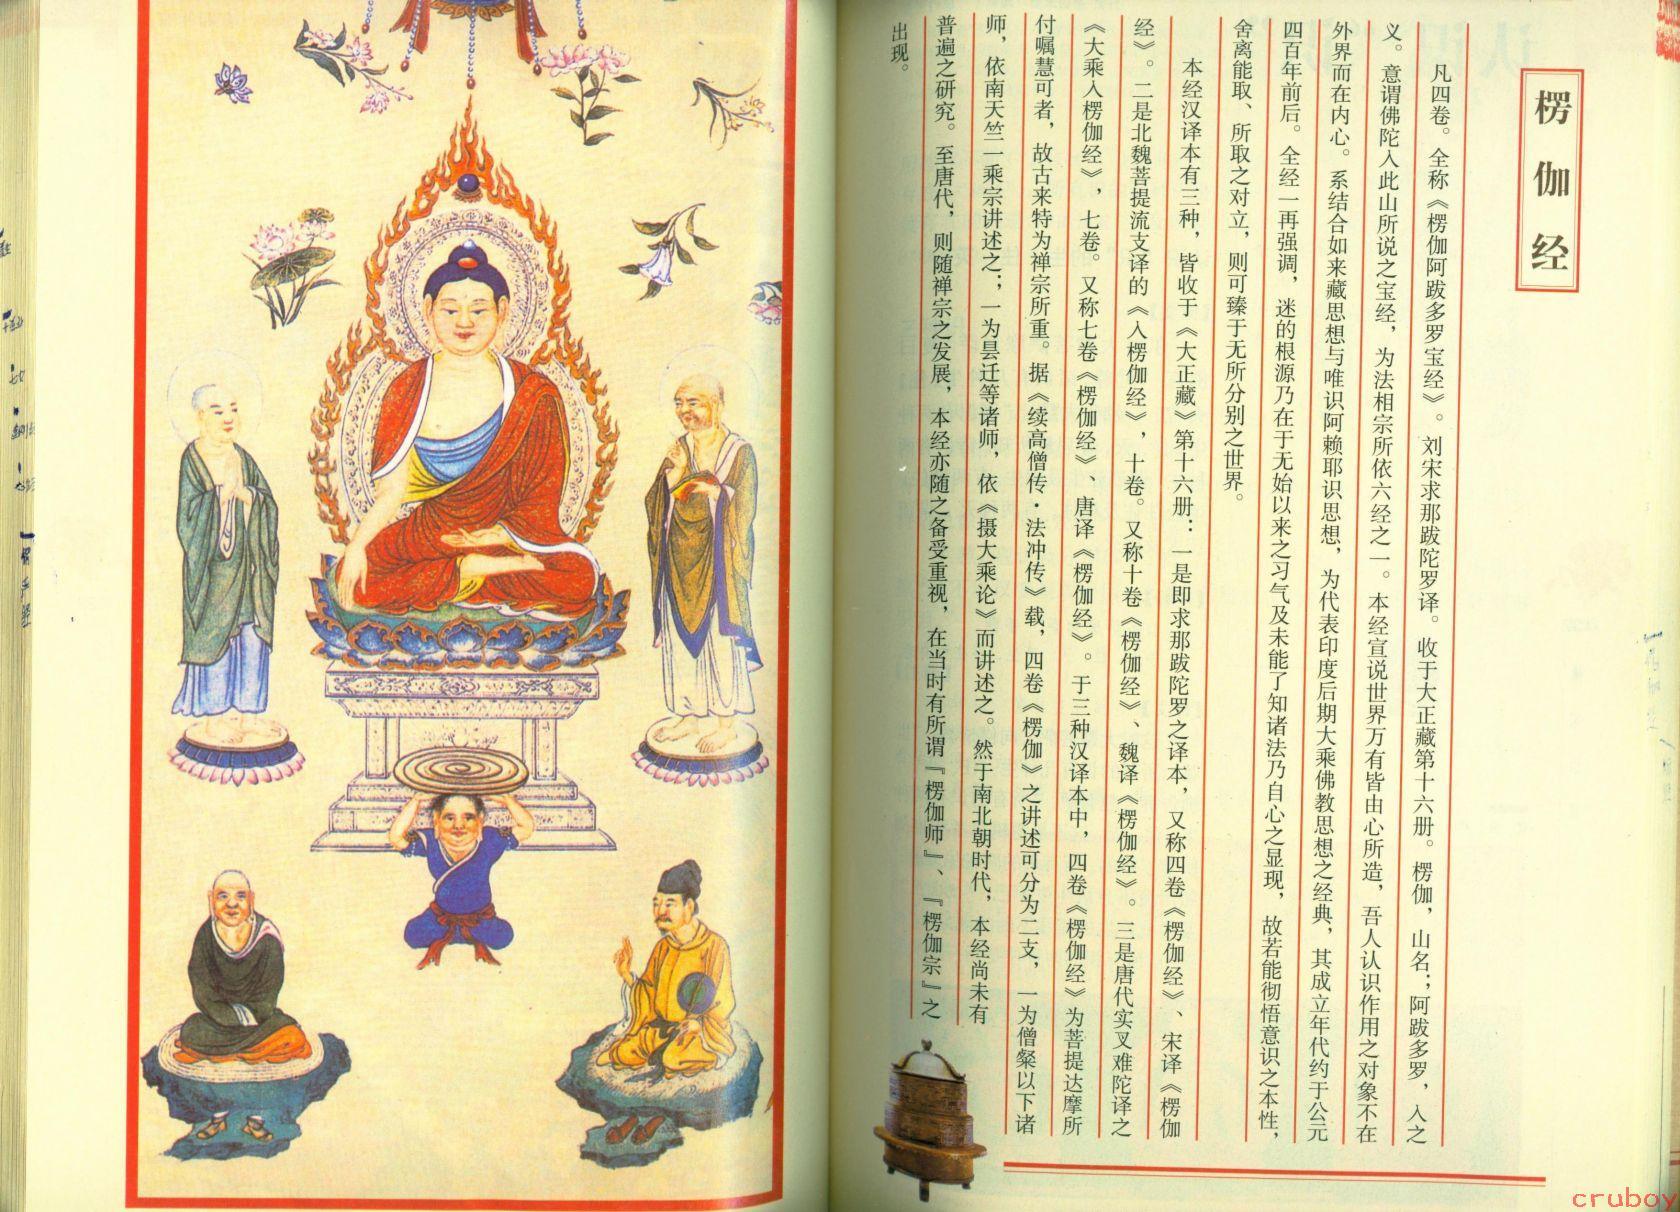 楞伽经
凡四卷。全称《楞伽阿跋多罗宝经》。刘宋求那跋陀罗译。收于大正藏第十六册。楞伽，山名；阿跋多罗，入之
义。意谓佛陀入此山所说之宝经，为法相宗所依六经之一。本经宣说世界万有皆由心所造，吾人认识作用之对象不在
外界而在内心。系结合如来藏思想与唯识阿赖耶识思想，为代表印度后期大乘佛教思想之经典，其成立年代约于公元
四百年前后。全经一再强调，迷的根源乃在于无始以来之习气及未能了知诸法乃自心之显现，故若能彻悟意识之本性，
舍离能取、所取之对立，则可臻于无所分别之世界。
本经汉译本有三种，皆收于《大正藏》第十六册：一是即求那跋陀罗之译本，又称四卷《楞伽经》、宋译《楞伽
经》。二是北魏菩提流支译的《入楞伽经》，十卷。又称十卷《楞伽经》、魏译《楞伽经》。三是唐代实叉难陀译之
《大乘入楞伽经》，七卷。又称七卷《楞伽经》、唐译《楞伽经》。于三种汉译本中，四卷《楞伽经》为菩提达摩所
付嘱慧可者，故古来特为禅宗所重。据《续高僧传·法冲传》载，四卷《楞伽》之讲述可分为二支，一为僧粲以下诸
师，依南天竺一乘宗讲述之；一为昙迁等诸师，依《摄大乘论》而讲述之。然于南北朝时代，本经尚未有
普遍之研究。至唐代，则随禅宗之发展，本经亦随之备受重视，在当时有所谓『楞伽师』、『楞伽宗』之
出现。
cruboy